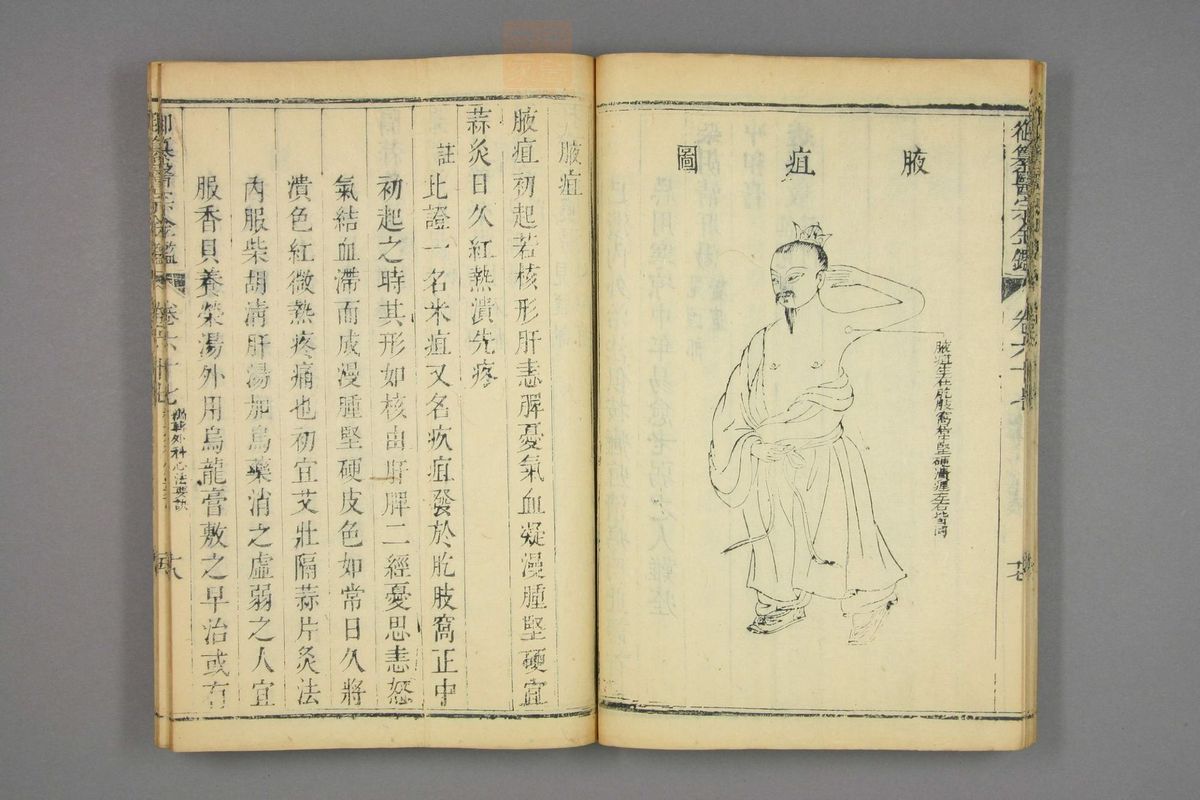 腋疽圖
腋疽生在胳肢窩初生堅硬潰遲左右皆同
御纂醫宗金鑑
腋疽
腋疽初起若核形肝恚脾憂氣血凝漫腫堅硬宜
蒜灸日久紅熱潰先疼
註此證一名米疽又名疚疽發於胳肢窩正中
初起之時其形如核由肝脾二經憂思恚怒
氣結血滯而成漫腫堅硬皮色如常日久將
潰色紅微熱疼痛也初宜艾壯隔蒜片灸法
內服柴胡清肝湯加烏藥消之虛弱之人宜
服香貝養榮湯外用烏龍膏敷之早治或有
御纂醫宗金鑑 卷六十七 編輯外科心法要訣